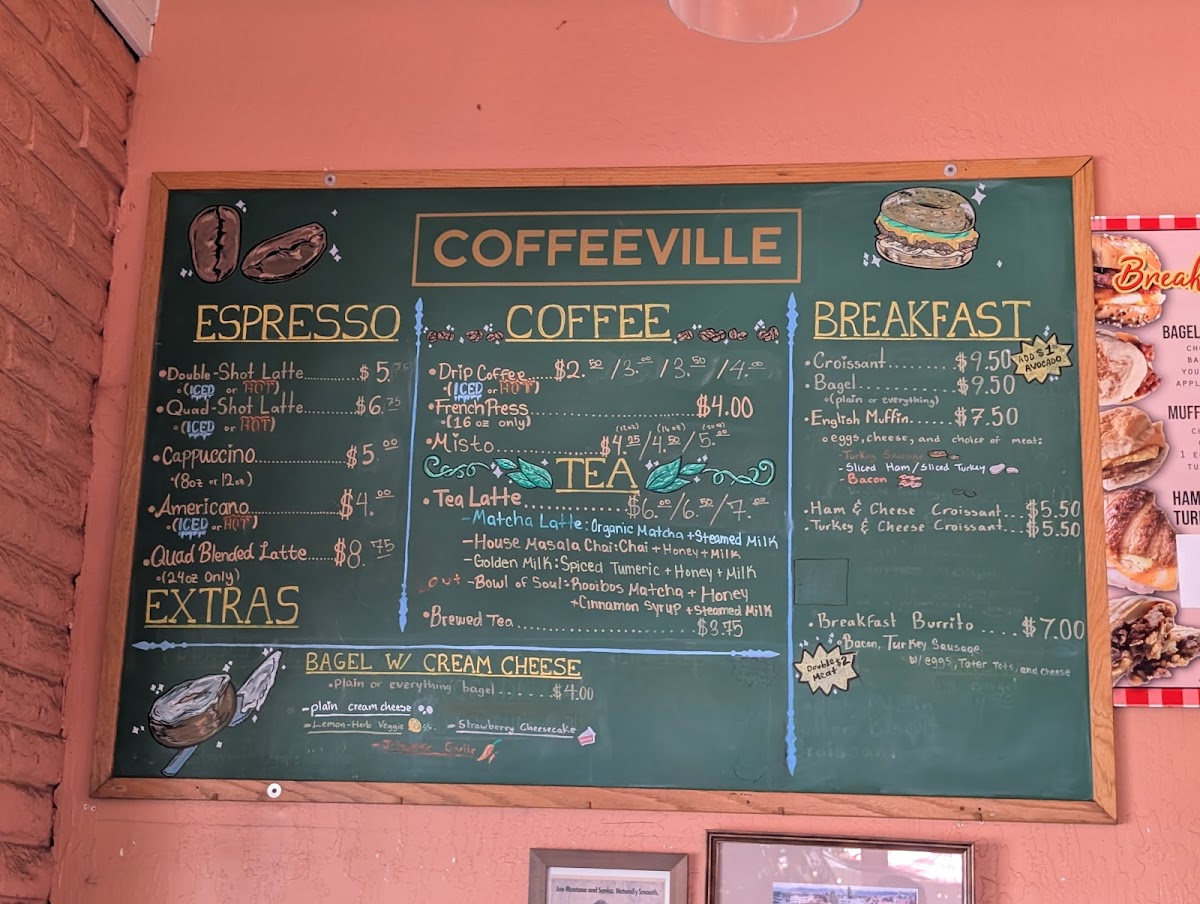 COFFEEVILLE
ESPRESSO
•Double-Shot Latte........ $5.75
•(ICED or HOT)
•Quad-Shot Latte........ $6.75
(ICED or HOT)
•Cappuccino........ $5.00
•(8oz or 12oz)
•Americano........ $4.00
•(ICED or HOT)
•Quad Blended Latte...... $8.75
•(24oz Only)
EXTRAS
COFFEE
•Drip Coffee.... $2.50 /3.00 /3.50 /4.00
(ICED or HOT)
•French Press........ $4.00
•(16 oz only)
•Misto........ $4.25/4.50/5.00
(12oz) (16oz) (20oz)
TEA
•Tea Latte........ $6.00/6.50/7.00
-Matcha Latte: Organic Matcha + Steamed Milk
-House Masala Chai: Chai + Honey + Milk
-Golden Milk: Spiced Tumeric + Honey + Milk
out -Bowl of Soul: Rooibos Matcha + Honey
+Cinnamon Syrup + Steamed Milk
•Brewed Tea........ $3.75
BREAKFAST
•Croissant........ $9.50
ADD $1 AVOCADO
•Bagel........ $9.50
o(plain or everything)
•English Muffin..... $7.50
o eggs, cheese, and choice of meat:
-Turkey Sausage
-Sliced Ham/Sliced Turkey
-Bacon
•Ham & Cheese Croissant...$5.50
•Turkey & Cheese Croissant...$5.50
•Breakfast Burrito.....$7.00
•Bacon, Turkey Sausage
w/eggs, Tater Tots, and cheese
Double $2
Meat
BAGEL W/ CREAM CHEESE
•plain or everything bagel.......$4.00
-plain cream cheese
-Lemon-Herb Veggie
-Strawberry Cheesecake
-Jalapeño Garlic
Break
BAGEL
MUFF
HAM
TUR
Joe Montana and Sanka. Naturally Smooth.